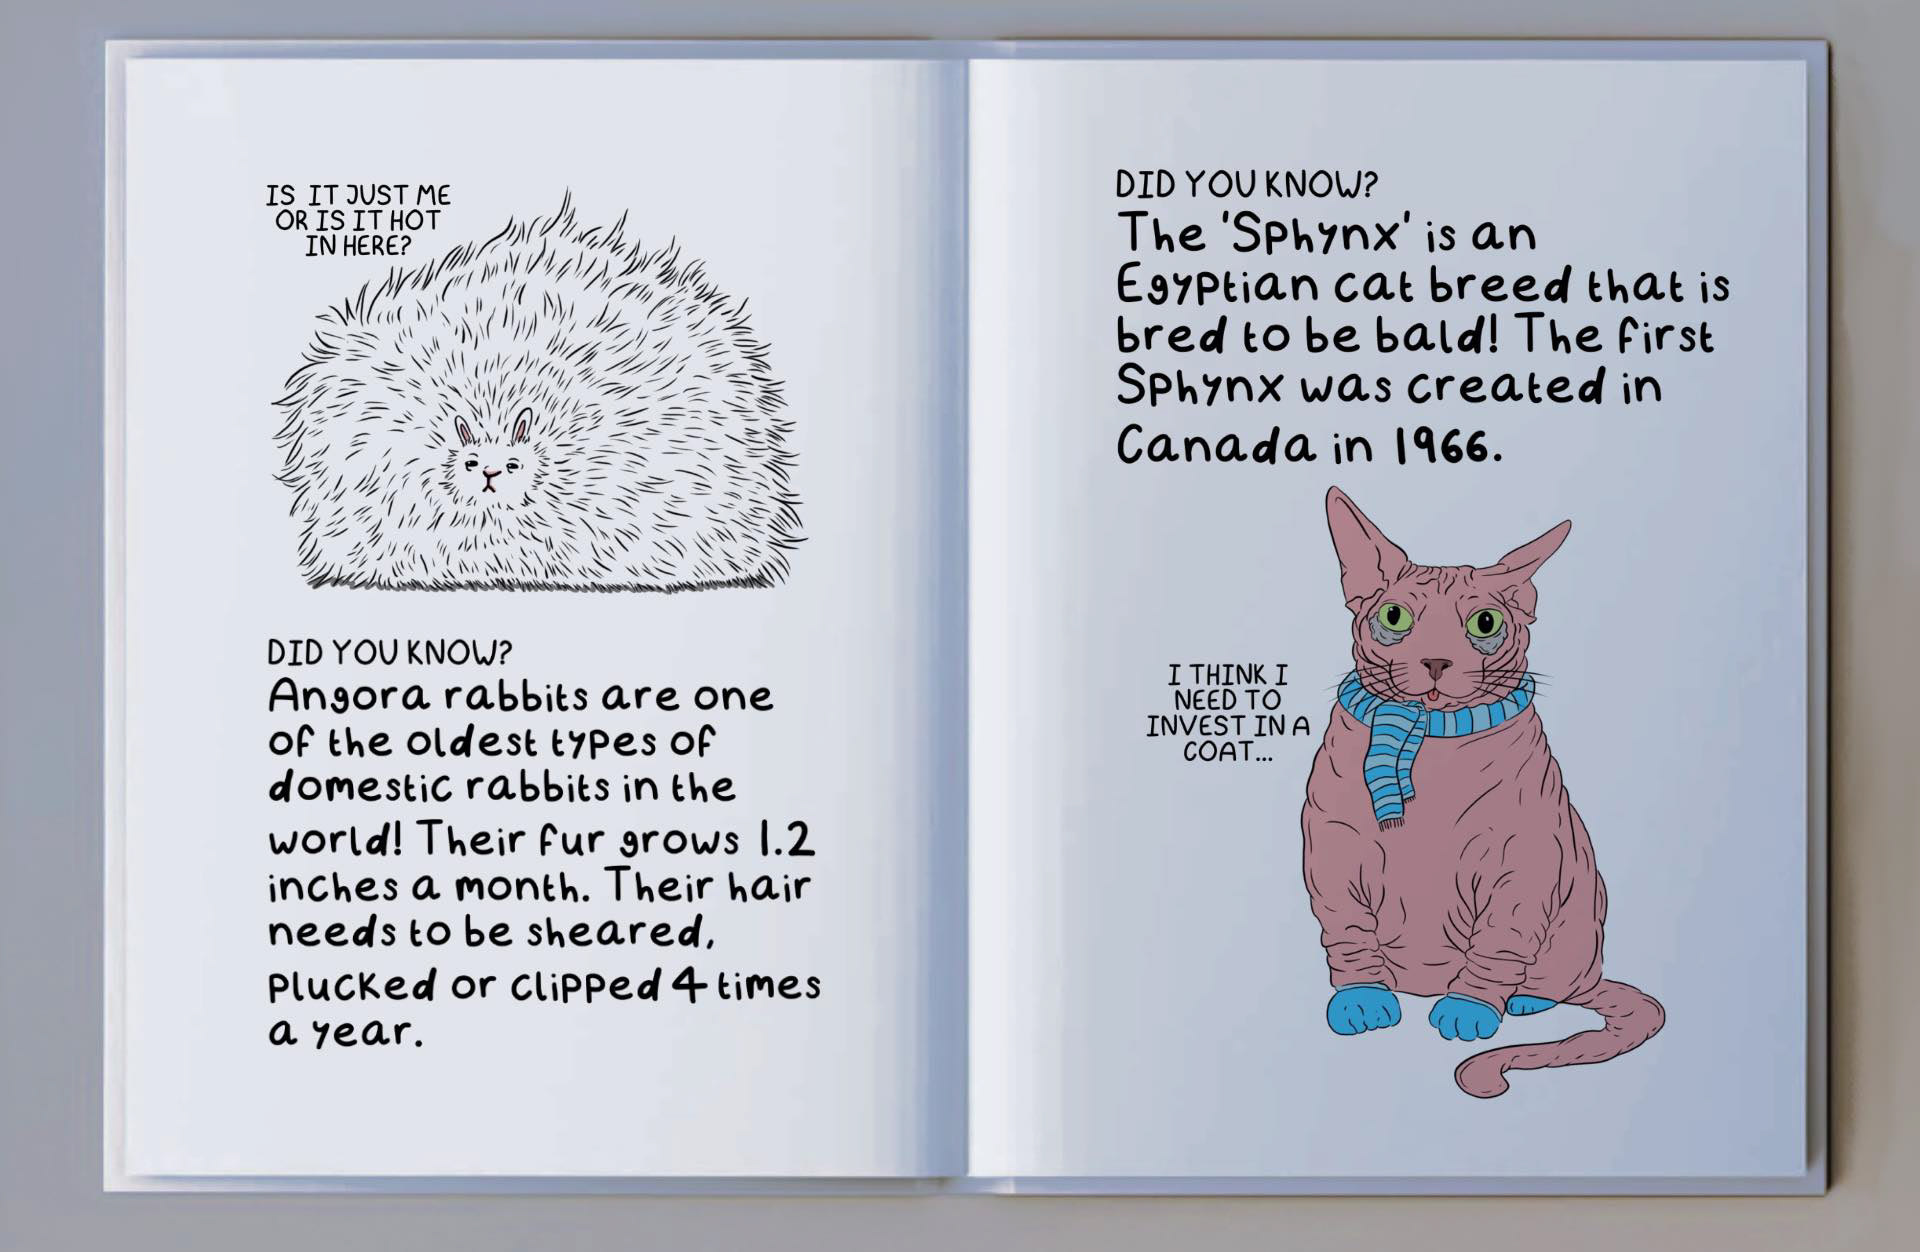 IS IT JUST ME
OR IS IT HOT
IN HERE?
DID YOU KNOW?
Angora rabbits are one
of the oldest types of
domestic rabbits in the
world! Their fur grows 1.2
inches a month. Their hair
needs to be sheared,
plucked or clipped 4 times
a year.
DID YOU KNOW?
The 'Sphynx' is an
Egyptian cat breed that is
bred to be bald! The first
Sphynx was created in
Canada in 1966.
I THINK I
NEED TO
INVEST IN A
COAT...